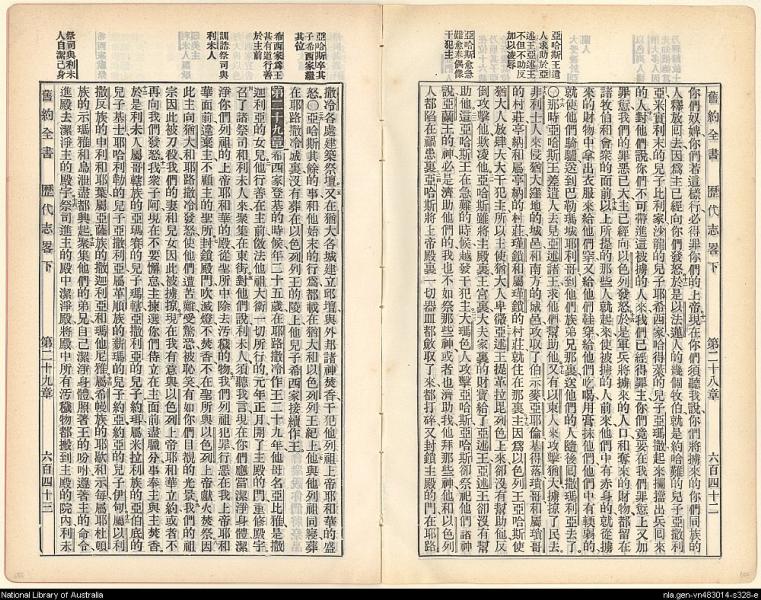 舊約全書 歷代志畧下 第二十八章 六百四十二
你們奴婢你們若這樣行必得罪你們的上帝現在你們須聽我說你們將擄來的你們同族的
人釋放回去因爲主已經向你們發怒於是以法蓮人的幾個牧伯就是約哈難的兒子亞撒利
亞米實利末的兒子比利家沙龍的兒子耶希西家哈得萊的兒子亞瑪撒起來攔擋出兵回來
的人對他們說你們不可帶進這被擄的人來我們已經得罪主你們竟要在我們罪愆上又加
罪愆我們的罪愆已大主已經向以色列發怒於是軍兵將擄來的人口和奪來的財物都留在
諸牧伯和會衆的面前以上所提的那些人就起來使被擄的人前來他們中有赤身的就從擄
來的財物中拿出衣服來給他們穿又給他們鞋穿給他們吃喝用膏抹他們他們中有輭弱的
就使他們騎驢送到巴勒瑪城耶利哥到他們族弟兄那裏送他們的人隨後回撒瑪利亞去了
○那時亞哈斯王差遣人去見亞述諸王求他們幫助他又有以東人來攻擊猶大擄掠了民去
非利士人來侵猶大窪地的城邑和南方的城邑攻取了伯示麥亞耶倫基得落瑣哥和屬瑣哥
的村莊亭納和屬亭納的村莊瑾鎖和屬瑾鎖的村莊就住在那裏主因爲以色列王亞哈斯使
猶大人放肆大大干犯主所以主使猶大人卑微亞述王提革拉毘列色上來卻沒有幫助他反
倒攻擊他欺凌他亞哈斯雖將主殿裏王宮裏大夫家裏的財寶給了亞述王亞述王卻沒有幫
助他這亞哈斯王在急難的時候越發干犯主大瑪色人攻擊亞哈斯亞哈斯卻祭祀他們諸神
說亞蘭王的神必是濟助他們的我也不如祭那些神或者也濟助我他拜那些神他和以色列
人都陷在禍患裏亞哈斯將上帝殿裏一切器皿都斂取了來都打碎又封鎖主殿的門在耶路
亞哈斯王遣
人求助於亞
述王亞述王
不但不助反
加以凌辱
亞哈斯愈急
難愈奉偶像
干犯主
撒冷各處建築祭壇又在猶大各城建立邱壇與外邦諸神焚香干犯他列祖上帝耶和華的盛
怒○亞哈斯其餘的事和他始末的行爲都載在猶大和以色列列王紀上他與他列祖同寢葬
在耶路撒冷城裏沒有葬在以色列列王的陵上他兒子希西家接續作王
第二十九章 希西家登基的時候年二十五歲在耶路撒冷作王二十九年他母名亞比雅是撒
迦利亞的女兒他行善在主前效法他祖大衛一切所行的元年正月開了主殿的門重修殿宇
召了諸祭司和利未人來聚集在東街對他們說利未人須聽我言現在你們應當潔淨身體潔
淨你們列祖的上帝耶和華的殿從聖所中除去汚穢的物我們列祖犯罪行惡在我上帝耶和
華面前違棄主不離主的聖所封鎖殿門吹滅燈不焚香不在聖所與以色列上帝獻火焚祭因
此主向猶大和耶路撒冷發怒使他們遭苦難受驚恐被恥笑有如你們目覩的光景我們的祖
宗因此被刀殺我們的妻和兒女因此被擄現在我有意與以色列上帝耶和華立約或者不
再向我們發怒我衆子阿現在不要懈怠主揀選你們侍立在主面前盡職分事奉主與主焚香
於是利未人屬哥轄族的亞瑪賽的兒子瑪轄亞撒利亞的兒子約珥屬米拉利族的亞伯底的
兒子基士耶哈利勒的兒子亞撒利亞屬革順族的薪瑪的兒子約亞約亞的兒子伊甸屬以利
撒反族的申利和耶葉屬亞薩族的撒迦利亞和瑪他尼雅屬希幔族的耶歇和示每屬耶杜頓
族的示瑪雅和烏泄盡都興起聚集他們的弟兄自己潔淨身體照著王的吩咐遵著主的命令
進殿去潔淨主的殿宇祭司進主的殿中潔淨殿將殿中所有汚穢物都搬到主殿的院內利未
舊約全書 歷代志畧下 第二十九章 六百四十三
亞哈斯卒其
子希西家繼
其位
希西家爲王
甚有道行善
於主前
訓諮祭司與
利未人
祭司與利未
人自潔己身
National Library of Australia
nla.gen-vn483014-s328-e